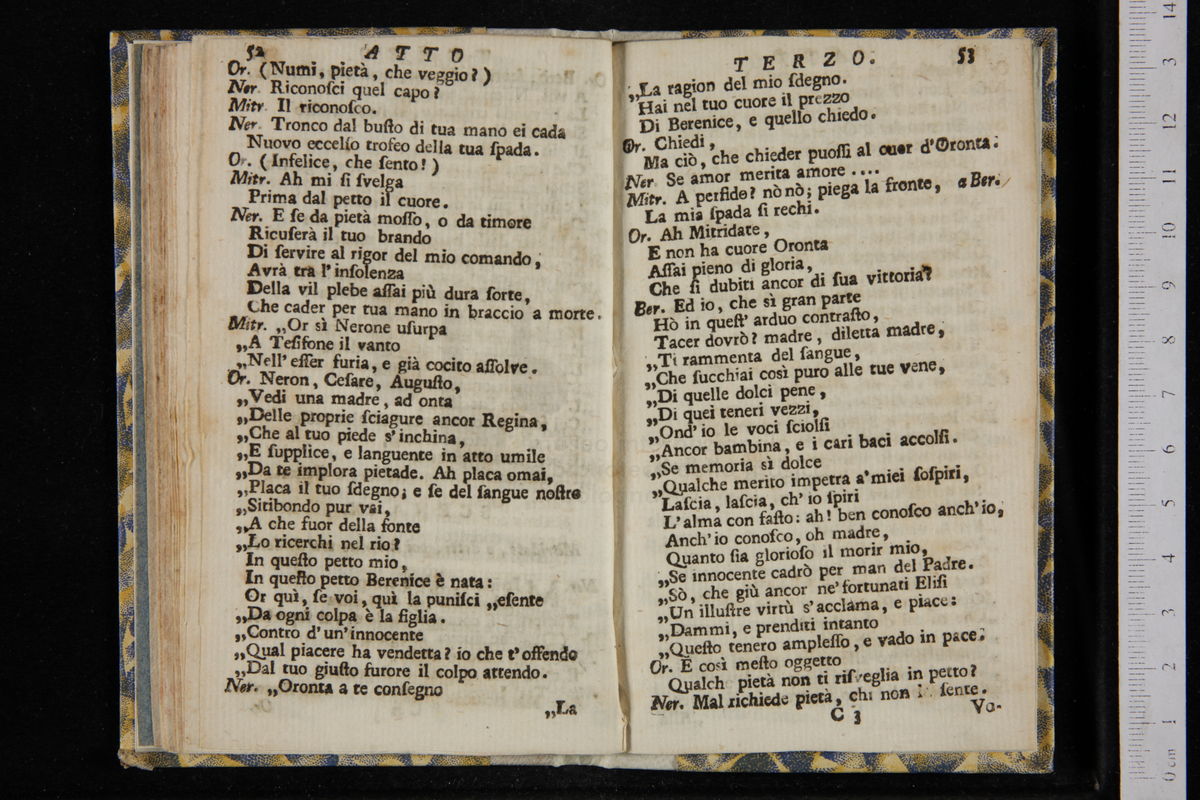 52 ATTO
Or. (Numi, pietà, che veggio?)
Ner. Riconoſci quel capo?
Mitr. Il riconoſco.
Ner. Tronco dal buſto di tua mano ei cada
Nuovo eccelſo trofeo della tua ſpada.
Or. (Infelice, che ſento!)
Mitr. Ah mi ſi ſvelga
Prima dal petto il cuore.
Ner. E ſe da pietà moſſo, o da timore
Ricuſerà il tuo brando
Di ſervire al rigor del mio comando,
Avrà tra l'inſolenza
Della vil plebe aſſai più dura ſorte,
Che cader per tua mano in braccio a morte.
Mitr. „Or sì Nerone uſurpa
„A Teſifone il vanto
„Nell' eſſer furia, e già cocito aſſolve.
Or. Neron, Ceſare, Auguſto,
„Vedi una madre, ad onta
„Delle proprie ſciagure ancor Regina,
„Che al tuo piede s'inchina,
„E ſupplice, e languente in atto umile
„Da te implora pietade. Ah placa omai,
„Placa il tuo ſdegno; e ſe del ſangue noſtro
„Sitibondo pur vai,
„A che fuor della fonte
„Lo ricerchi nel rio?
In queſto petto mio,
In queſto petto Berenice è nata:
Or quì, ſe voi, quì la puniſci „eſente
„Da ogni colpa è la figlia.
„Contro d'un'innocente
„Qual piacere ha vendetta? io che t'offendo
„Dal tuo giuſto furore il colpo attendo.
Ner. „Oronta a te conſegno
„La
TERZO. 53
„La ragion del mio ſdegno.
Hai nel tuo cuore il prezzo
Di Berenice, e quello chiedo.
Or. Chiedi,
Ma ciò, che chieder puoſſi al cuor d'Oronta:
Ner. Se amor merita amore ....
Mitr. A perfido? nò nò; piega la fronte, a Ber.
La mia ſpada ſi rechi.
Or. Ah Mitridate,
E non ha cuore Oronta
Aſſai pieno di gloria,
Che ſi dubiti ancor di ſua vittoria?
Ber. Ed io, che sì gran parte
Hò in queſt' arduo contraſto,
Tacer dovrò? madre, diletta madre,
„Ti rammenta del ſangue,
„Che ſucchiai così puro alle tue vene,
„Di quelle dolci pene,
„Di quei teneri vezzi,
„Ond' io le voci ſciolſi
„Ancor bambina, e i cari baci accolſi.
„Se memoria sì dolce
„Qualche merito impetra a' miei ſoſpiri,
Laſcia, laſcia, ch' io ſpiri
L'alma con faſto: ah! ben conoſco anch'io,
Anch'io conoſco, oh madre,
Quanto ſia glorioſo il morir mio,
„Se innocente cadrò per man del Padre.
„Sò, che giù ancor ne' fortunati Eliſi
„Un illuſtre virtù s'acclama, e piace:
„Dammi, e prenditi intanto
„Queſto tenero ampleſſo, e vado in pace.
Or. E così meſto oggetto
Qualch pietà non ti riſveglia in petto?
Ner. Mal richiede pietà, chi non ſente.
C 3 Vo-